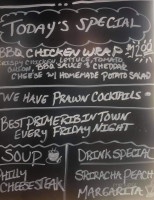 TODAY'S SPECIAL
BBQ CHICKEN WRAP $12.00
CRISPY CHICKEN, LETTUCE, TOMATO,
ONION, BBQ SAUCE & CHEDDAR
CHEESE W/ HOMEMADE POTATO SALAD
WE HAVE PRAWN COCKTAILS
BEST PRIME RIB IN TOWN
EVERY FRIDAY NIGHT
SOUP
PHILLY
CHEESESTEAK
DRINK SPECIAL
SRIRACHA PEACH
MARGARITA